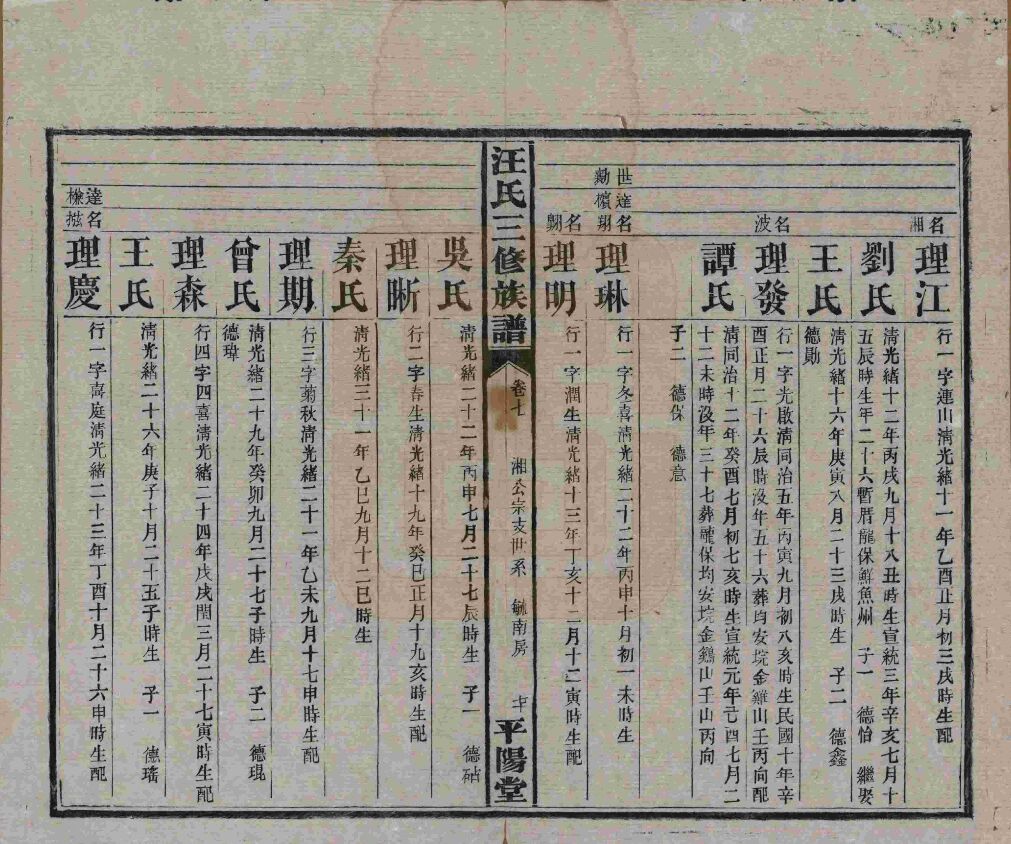 名湘
理江
行一字連山清光緒十一年乙酉正月初三戌時生配
劉氏
清光緒十二年丙戌九月十八丑時生宣統三年辛亥七月十
五辰時生年二十六暫厝龍保鮮魚州 子一 德怡 繼娶
王氏
清光緒十六年庚寅八月二十三戌時生 子二 德鑫
德勛
名波
理發
行一字光啟清同治五年丙寅九月初八亥時生民國十年辛
酉正月二十六辰時沒年五十六葬均安垸金雞山壬丙向配
譚氏
清同治十二年癸酉七月初七亥時生宣統元年己酉七月二
十二未時沒年三十七葬龍保均安垸金鷄山壬山丙向
子二 德保 德意
世勳
達檳
名翔
理琳
行一字冬喜清光緒二十二年丙申十月初一未時生
名翱
理明
行一字潤生清光緒十三年丁亥十二月十二寅時生配
汪氏三修族譜
卷七 湘公宗支世系 毓南房
平陽堂
吳氏
清光緒二十二年丙申七月二十七辰時生 子一 德砧
理晰
行二字春生清光緒十九年癸巳正月十九亥時生配
秦氏
清光緒三十一年乙巳九月十二巳時生
理期
行三字菊秋清光緒二十一年乙未九月十七申時生配
曾氏
清光緒二十九年癸卯九月二十七子時生 子二 德琨
德瑋
理森
行四字四喜清光緒二十四年戊戌閏三月二十七寅時生配
王氏
清光緒二十六年庚子十月二十五子時生 子一 德瑤
達檢
名
理慶
行一字喜庭清光緒二十三年丁酉十月二十六申時生配